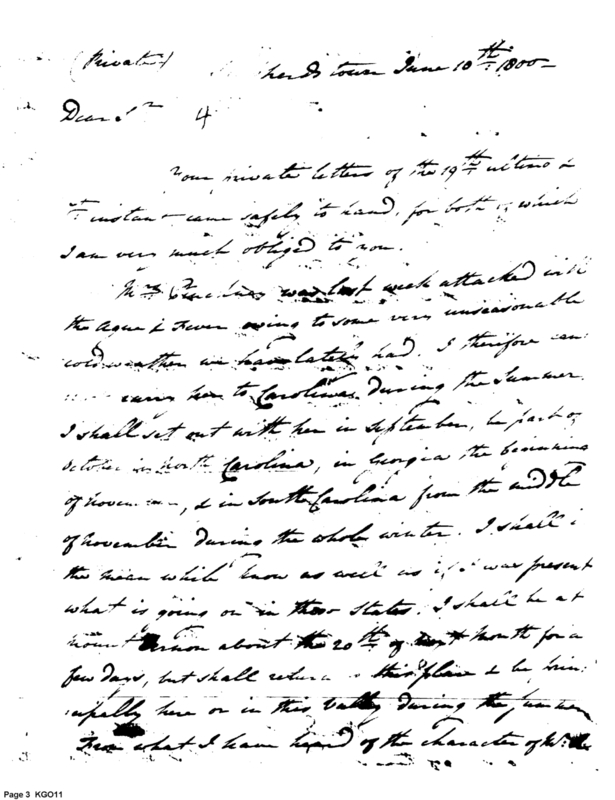 (Private)
herdstown June 10th 1800—
Dear Sr 4
Your private letters of the 19th ultimo &
th instant came safely to hand, for both of which
I am very much obliged to you.
Mrs Pinckney was last week attacked with
the Ague & Fever owing to some very unseasonable
cold weather we have lately had. I therefore can
carry her to Carolina during the Summer.
I shall set out with her in September, be part of
October in North Carolina, in Georgia the beginning
of November, & in South Carolina from the middle
of November during the whole winter. I shall i
the mean while know as well as if I was present
what is going on in those States. I shall be at
Mount Vernon about the 20th of next Month for a
few days, but shall return to this place & be prin
cipally here or in this Valley during the Summer
From what I have heard of the character of Mr.
Page 3 KGO11